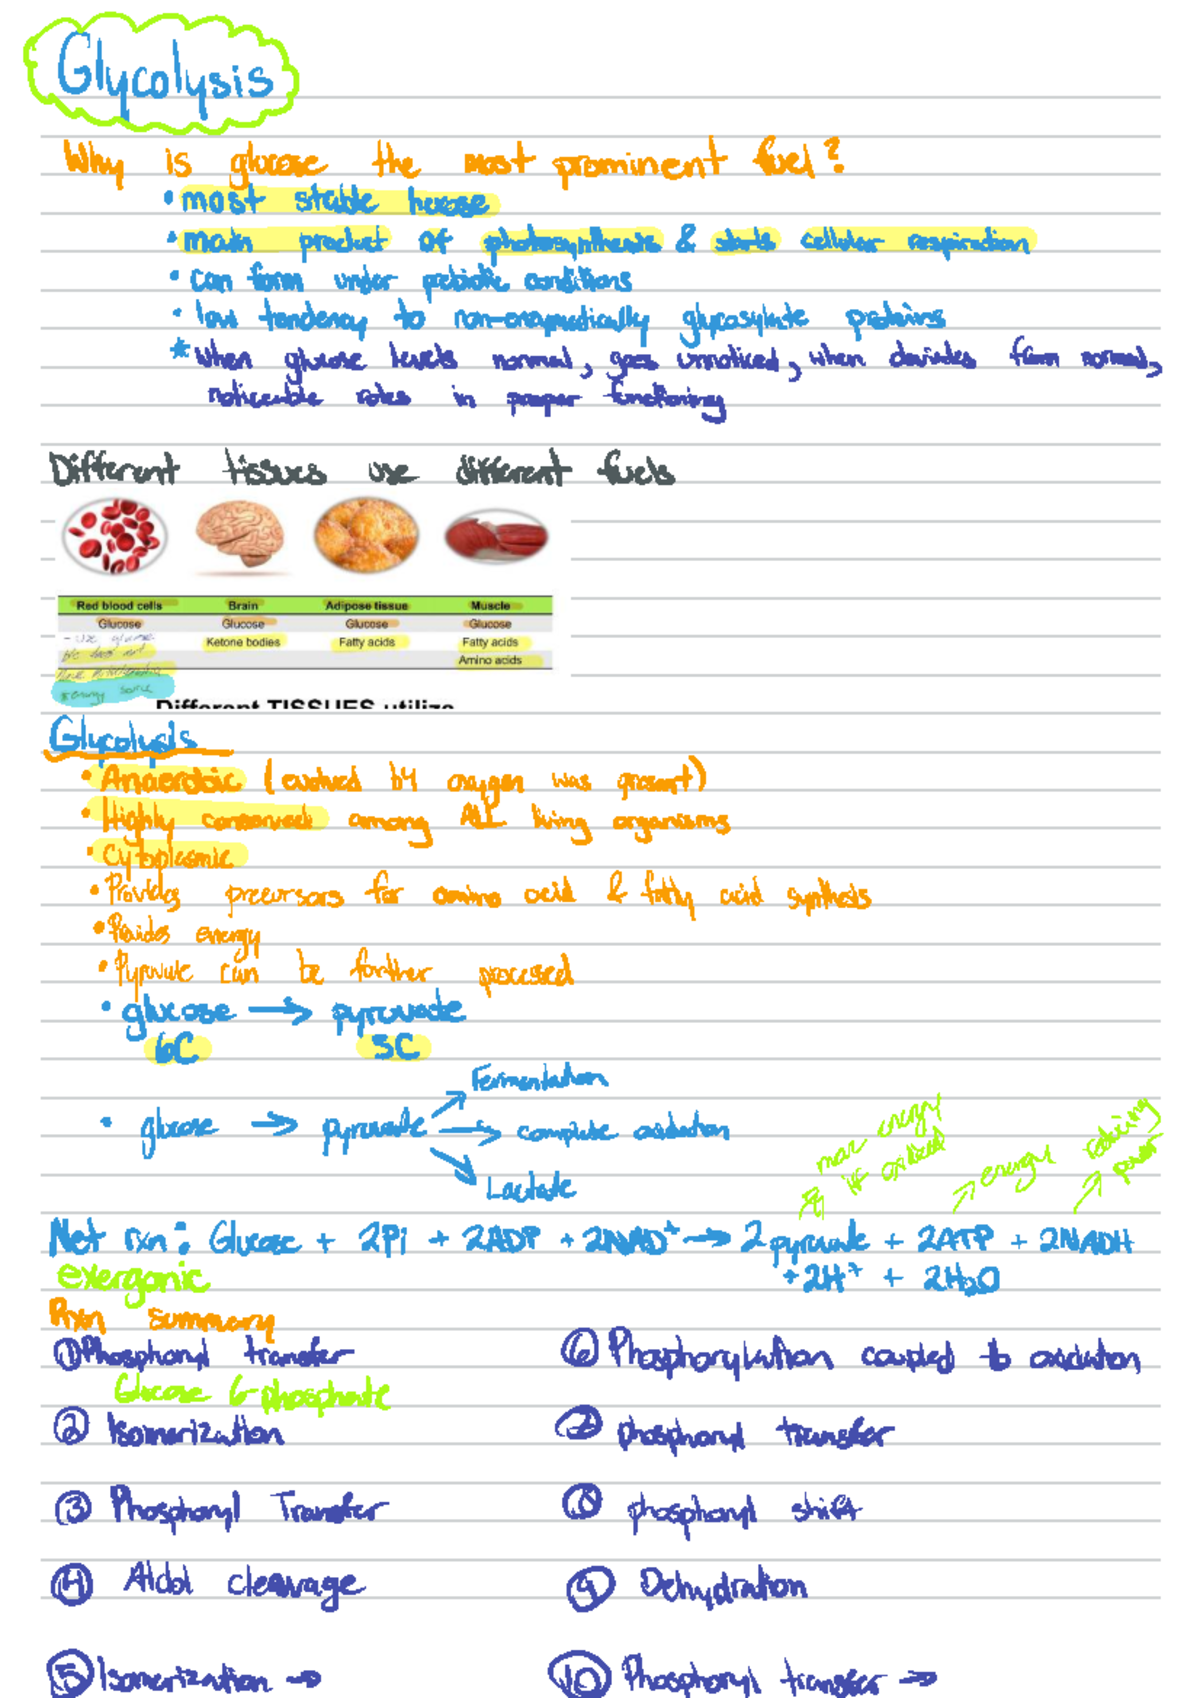 Glycolysis
Why is glucose the most prominent fuel?
• most stable hexose
• main product of photosynthesis & starts cellular respiration
• can form under prebiotic conditions
• low tendency to non-enzymatically glycosylate proteins
* When glucose levels normal, goes unnoticed, when deviates from normal,
noticeable roles in proper functioning
Different tissues use different fuels
Red blood cells Brain Adipose tissue Muscle
Glucose Glucose Glucose Glucose
- use glucose Ketone bodies Fatty acids Fatty acids
b/c does not Amino acids
have mitochondria
* energy source
Different TISSUES utilize
Glycolysis
• Anaerobic (evolved b4 oxygen was present)
• Highly conserved among ALL living organisms
• Cytoplasmic
• Provides precursors for amino acid & fatty acid synthesis
• Provides energy
• Pyruvate can be further processed
• glucose → pyruvate
6C 3C
Fermentation
• glucose → pyruvate → complete oxidation
Lactate
more energy if oxidized energy reducing power
Net rxn: Glucose + 2Pi + 2ADP + 2NAD⁺ → 2 pyruvate + 2ATP + 2NADH
exergonic + 2H⁺ + 2H₂O
Rxn summary
① Phosphoryl transfer ⑥ Phosphorylation coupled to oxidation
Glucose 6-phosphate
② Isomerization ⑦ phosphoryl transfer
③ Phosphoryl Transfer ⑧ phosphoryl shift
④ Aldol cleavage ⑨ Dehydration
⑤ Isomerization → ⑩ Phosphoryl transfer →